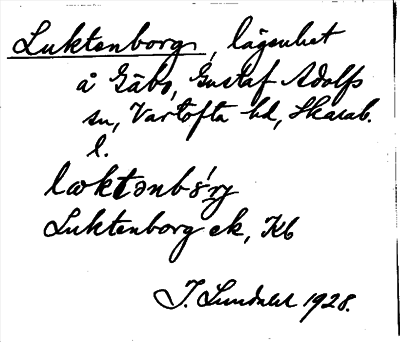 Luktenborg, lägenhet
å Gäbo, Gustaf Adolfs
sn, Vartofta hd, Skarab.
l.
Luktenborg ek, Kb
J. Lundahl 1928.